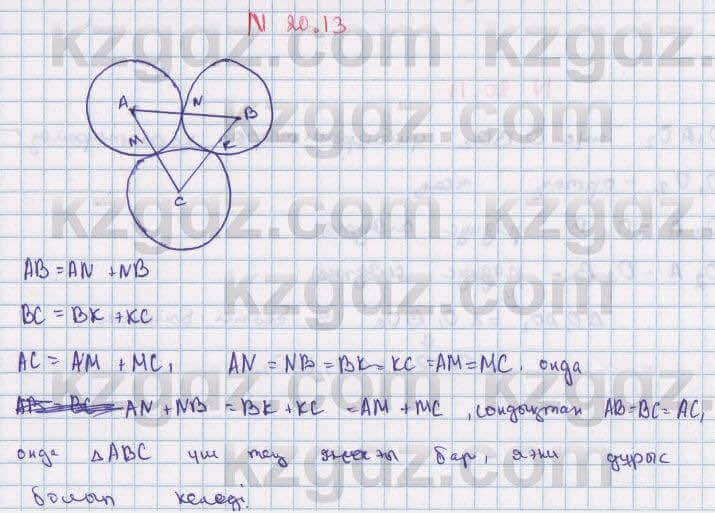 N 20.13
A N B
M K
C
AB = AN + NB
BC = BK + KC
AC = AM + MC, AN = NB = BK = KC = AM = MC, онда
AN + NB = BK + KC = AM + MC, сондықтан AB = BC = AC,
онда △ABC үш тең жағы бар, яғни дұрыс
болып келеді.
kzgdz.com